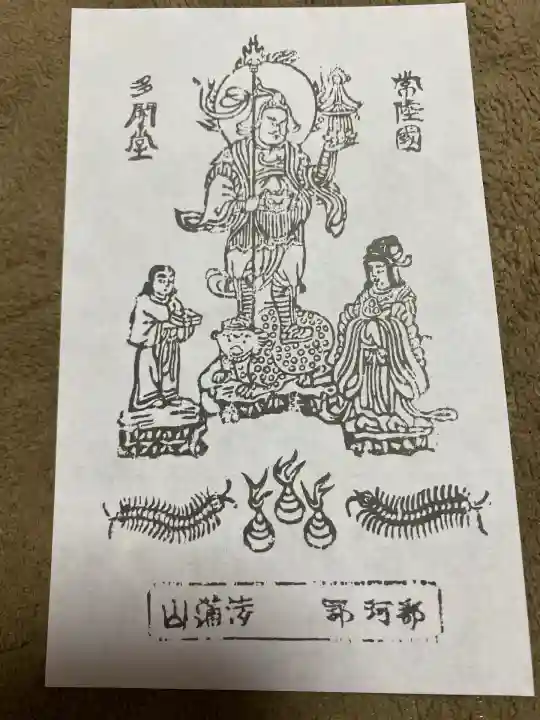 常陸國
多聞堂
那珂郡 蒲山